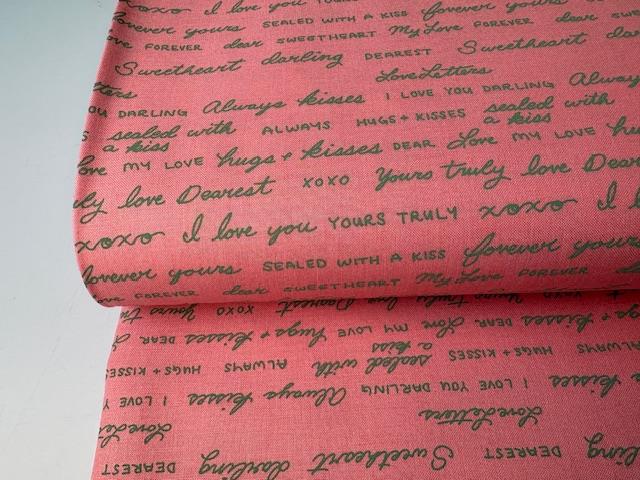 xoxo I love you
forever yours SEALED WITH A KISS forever yours
FOREVER dear SWEETHEART My Love FOREVER dear
Sweetheart darling DEAREST Sweetheart
Love Letters
I LOVE YOU DARLING Always kisses I LOVE YOU DARLING Always
sealed with a kiss ALWAYS HUGS + KISSES sealed with a kiss
love MY LOVE hugs + kisses DEAR Love MY LOVE
truly love Dearest XOXO Yours truly love
xoxo I love you YOURS TRULY xoxo I
forever yours SEALED WITH A KISS forever yours
FOREVER dear SWEETHEART My Love FOREVER
Yours truly love Dearest XOXO Yours
hugs + kisses DEAR Love MY LOVE hugs + kisses DEAR
ALWAYS sealed with a kiss HUGS + KISSES ALWAYS HUGS + KISSES
kisses I LOVE YOU DARLING Always kisses I LOVE
Love Letters
DEAREST Sweetheart darling DEAREST